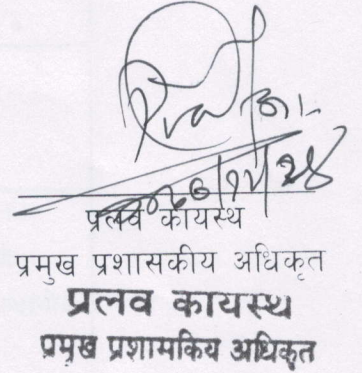 प्रलव कायस्थ
प्रमुख प्रशासकीय अधिकृत
प्रलव कायस्थ
प्रमुख प्रशासकिय अधिकृत